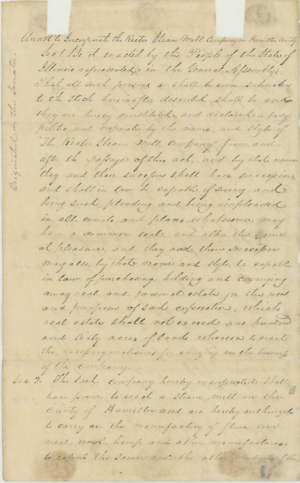 An act to Incorporate the Rector Steam Mill Company in Hamilton County
Sec 1 Be it enacted by the People of the State of
Illinois represented in the General Assembly
That all such persons as shall become subscribers
to the Stock hereinafter described shall be and
they are hereby constituted and declared a body
politic and corporate by the name and style of
The Rector Steam Mill Company from and
after the passage of this act, and by that name
they and their successors shall have succession
and shall in law be capable of suing and
being sued pleading and being impleaded
in all courts and places whatsoever may
have a common seal and alter the same
at pleasure, and they and their successors
may also by that name and style be capable
in law of purchasing holding and conveying
away real and personal estate for the uses
and purposes of said corporation, which
real estate shall not exceed one hundred
and sixty acres of land whereon to erect
the necessary machinery for carrying on the business
of the company
Sec 2. The said company hereby incorporated shall
have power to erect a Steam Mill in the
County of Hamilton and are hereby authorized
to carry on the manufactory of flour
hemp and other manufactures
Originated in the Senate